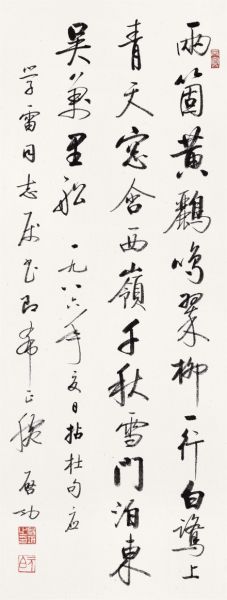 兩箇黃鸝鳴翠柳一行白鷺上
青天窓含西嶺千秋雪門泊東
吳萬里船 一九八六年夏日拈杜句应
学雷同志属书即希正腕 启功